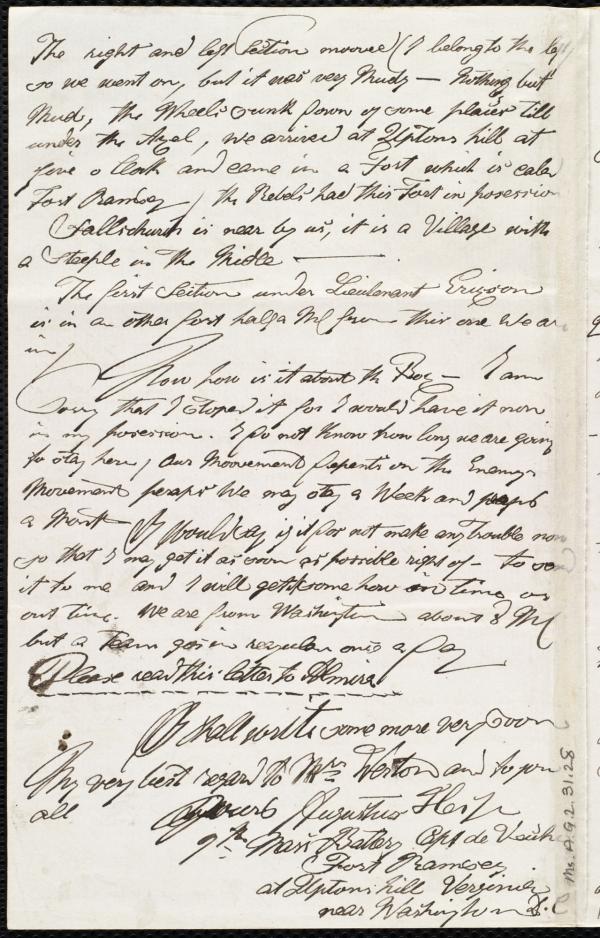 The right and left Section mooved (I belong to the left
so we went on, but it was very Mudy — nothing but
Mud, the Wheels sunk down of some places till
under the Axel, we arrived at Uptons hill at
five o Clock and came in a Fort which is caled
Fort Ramsey / the Rebels had this Fort in posession
Fallschurch is near by us, it is a Village with
a Steeple in the Midle —
The first Section under Lieutenant Erickson
is in an other fort half a Ml from this one We are
in /
Now how is it about the Box — I am
Sorry that I stoped it for I would have it now
in my posession. I do not Know how long we are going
to stay here, our Moovement depents on the Enemys
Movement perhaps We may stay a Week and perhaps
a Month — I would say if it dos not make any trouble now
so that I may get it as soon as possible right of — to send
it to me and I will get it some how in time or
out time. We are from Washington about 8 Ml
but a Team goes in regular ones a Day
Please read this letter to Almira
I shall write some more very soon
My very best regard to Mrs Weston and to you
all Yours Augustus
9th Mass Battery Capt de Vecch
Fort Ramsey
at Uptons hill Verginia
near Washington D.C
Ms. A.9.2.31.28